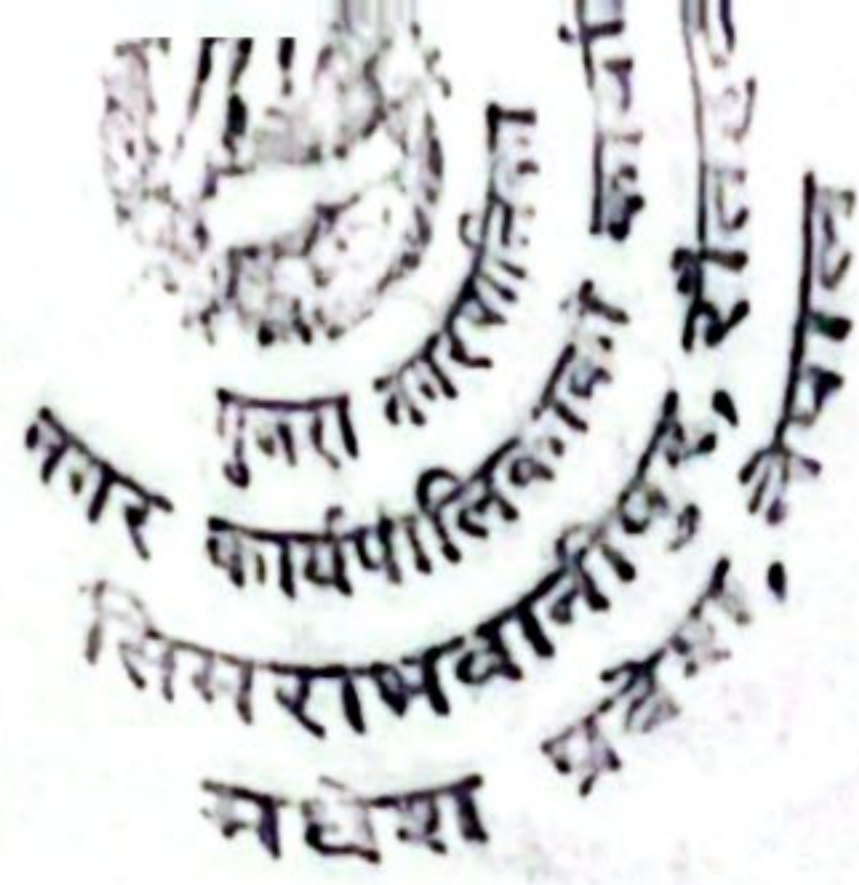 गुजरा नगरपालिका
नगर कार्यपालिकाको कार्यालय
सिमराभवानीपुर, रौतहट
मधेश प्रदेश, नेपाल